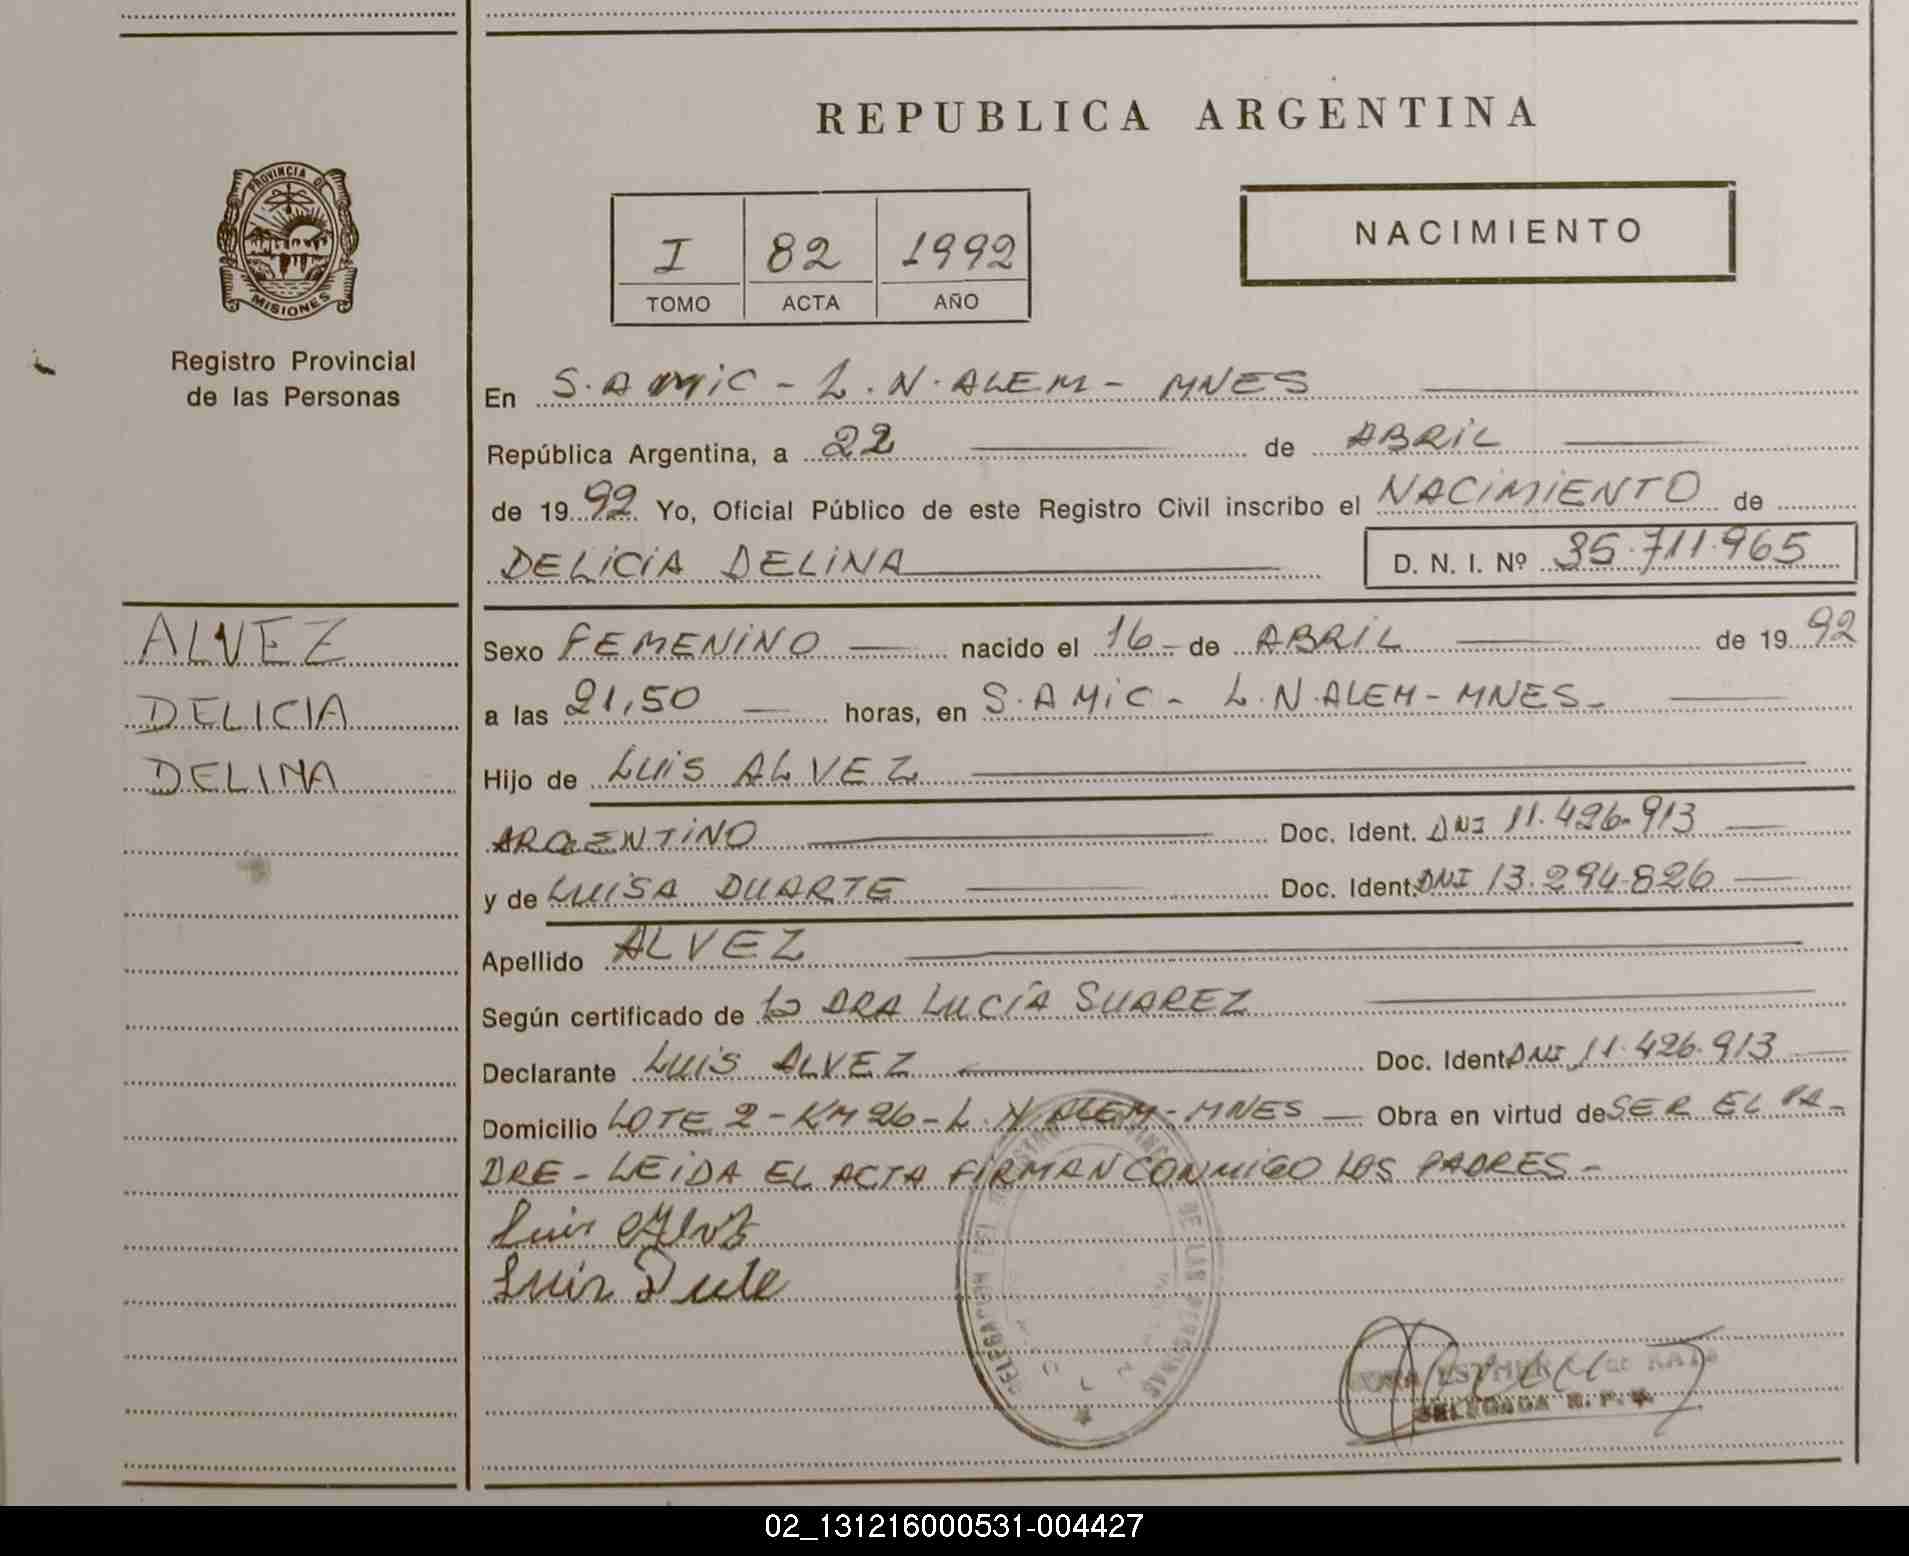 REPUBLICA ARGENTINA
PROVINCIA DE
MISIONES
Registro Provincial
de las Personas
I 82 1992
TOMO ACTA AÑO
NACIMIENTO
En S. AMIC - L. N. ALEM - MNES
República Argentina, a 22 de ABRIL
de 1992 Yo, Oficial Público de este Registro Civil inscribo el NACIMIENTO de
DELICIA DELINA D. N. I. Nº 35.711.965
ALVEZ
DELICIA
DELINA
Sexo FEMENINO nacido el 16 de ABRIL de 1992
a las 21,50 horas, en S. AMIC - L. N. ALEM - MNES -
Hijo de LUIS ALVEZ
ARGENTINO Doc. Ident. DNI 11.426.913
y de LUISA DUARTE Doc. Ident. DNI 13.294.826
Apellido ALVEZ
Según certificado de la DRA LUCÍA SUAREZ
Declarante LUIS ALVEZ Doc. Ident. DNI 11.426.913
Domicilio LOTE 2 - KM 26 - L. N. ALEM - MNES Obra en virtud de SER EL PA-
DRE - LEIDA EL ACTA FIRMAN CONMIGO LOS PADRES -
Luis
DE LAS PERSONAS
DELEGADA R. P. P.
02_131216000531-004427